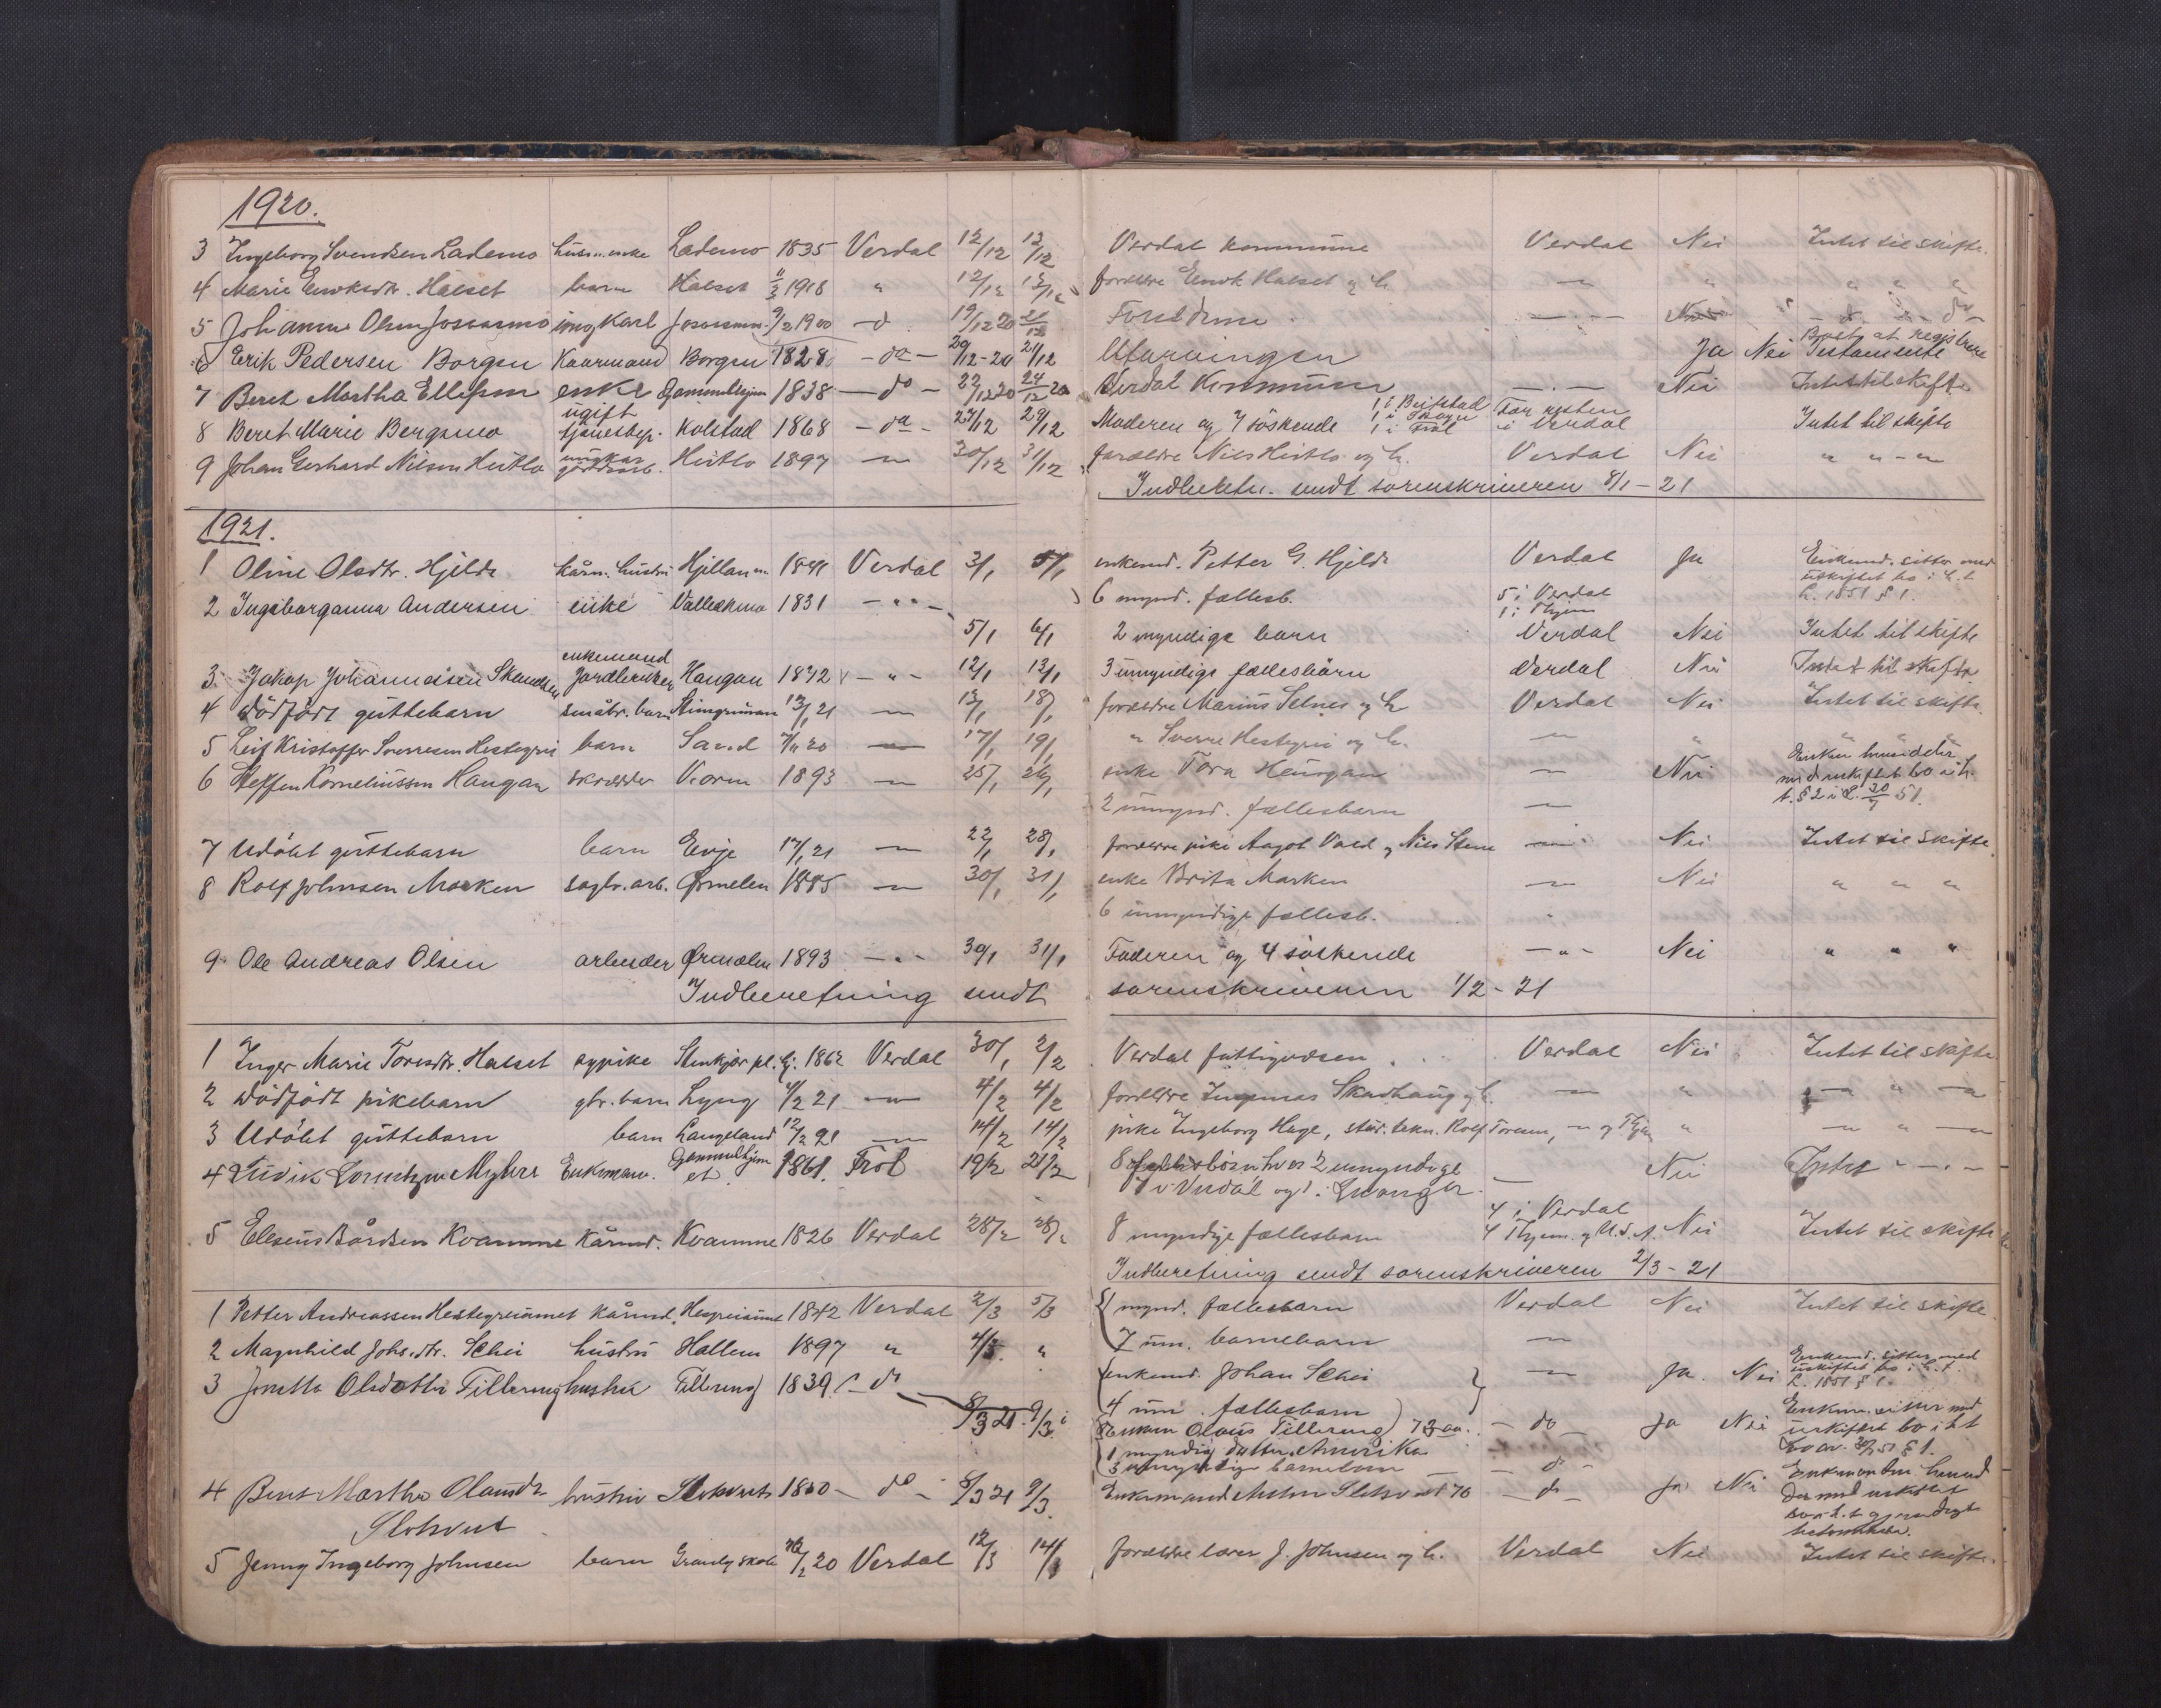 1920.
3 Ingeborg Svendsen Lademo husm. enke Lademo 1835 Verdal 12/12 13/12 Verdal kommune Verdal Nei Intet til skifte.
4 Marie Halset barn Halset 1918 " 12/12 13/12 forældre Halset og h. — " " " "
5 Johannes Olsen ung Karl 9/2 1900 — d 19/12 20 21/12 Forældrene — . — Nei
6 Erik Pedersen Borgen Kaarmand Borgen 1828 — do — 20/12-20 21/12 Utarvingen Ja Nei Testamente
7 Beret Martha Ellefsen enke Gammelhjem 1838 — do — 22/12 20 24/12 20 Verdal Kommune — . — Nei Intet til skifte
8 Beret Marie Bergsmo ugift tjenestep. Kolstad 1868 — do — 27/12 29/12 Moderen og 7 söskende 1 i Beitstad 1 i Skogn 1 i Frol Før resten i Verdal Intet til skifte
9 Johan Gerhard Nilsen Heitlo ungkar gårdsarb. Heitlo 1897 — 30/12 31/12 forældre Nils Heitlo og h. Verdal Nei " " - "
Indberetn. sendt sorenskriveren 8/1 - 21
1921.
1 Oline Olsdtr. Hjelde kårm. hustru 1841 Verdal 3/1 5/1 enkemd. Petter G. Hjelde Verdal Ja Enkemd. sitter med uskiftet bo i h.t. L. 1851 § 1.
2 Ingeborganna Andersen enke 1831 — " — 6 mynd. fællesb. 5 i Verdal 1 i Thjem
5/1 6/1 2 myndige barn Verdal Nei Intet til skifte
3 Jakop Johannesen enkemand Jordbruker Haugan 1842 — " — 12/1 13/1 3 umyndige fællesbårn Verdal Nei Intet til skifte
4 Dödfödt guttebarn småbr. barn 13/1 21 — 13/1 18/1 forældre Marius Selnes og h Verdal Nei Intet til skifte
5 Leif Kristoffer Sverresen Hestegrei barn Sand 7/11 20 — 17/1 19/1 " Sverre Hestegrei og h. — " " " "
6 Steffen Korneliussen Haugan skredder 1893 — 25/1 26/1 enke Tora Haugan — Nei Enken hensidder med uskiftet bo i h. t. § 2 i L. 30/7 51.
2 umynd. fællesbarn —
7 Udöbt guttebarn barn Evje 17/1 21 — 22/1 28/1 forældre pike Aagot Vold og Nils Stene — Nei Intet til skifte
8 Rolf Johnsen Marken sagbr. arb. Ørmelen 1885 — 30/1 31/1 enke Brita Marken — Nei " " "
6 umyndige fællesb. "
9 Ole Andreas Olsen arbeider Ørmelen 1893 — " — 30/1 31/1 Faderen og 4 söskende — " — Nei " " "
Indberetning sendt sorenskriveren 1/2 - 21
1 Inger Marie Toresdtr. Halset sypike Stenkjær pl. hj. 1862 Verdal 30/1 2/2 Verdal fattigvæsen Verdal Nei Intet til skifte
2 Dödfödt pikebarn gbr. barn Lyng 4/2 21 — 4/2 4/2 forældre Ingemas Skavhaug og h. — " — " —
3 Udöbt guttebarn barn Langeland 12/2 21 — 14/2 14/2 pike Ingeborg Hage, stud. tekn. Rolf " — " —
4 Ludvik Lorentzen Myhre Enkemann. Gammelhjemet 1861. Frol 19/2 21/2 8 fællesbörn hvor 2 umyndige — Nei Intet " — . —
7 i Verdal og 1 i Levanger
5 Eleseus Bårdsen Kvamme kårmd. Kvamme 1826 Verdal 28/2 28/2 8 myndige fællesbarn 4 i Verdal 4 Thjem. og U.S.A. Nei Intet til skifte
Indberetning sendt sorenskriveren 2/3 - 21
1 Petter Andreassen Hestegreiumet kårmd. 1842 Verdal 2/3 5/3 1 mynd. fællesbarn Verdal Nei Intet til skifte
7 um. barnebarn —
2 Magnhild Johs.dtr. Schei hustru Hallem 1897 " 4/3. " enkemd. Johan Schei — Ja. Nei Enkemd. sitter med uskiftet bo i h.t. L. 1851 § 1.
3 Olsdotter Tillereng hustru Tillereng 1839 — do 4 um. fællesbarn
8/3 21. 9/3 Enkem Olaus Tillereng 73 aar. — do — Ja Nei Enkem. sitter med uskiftet bo i h t lov av 30/7 51 § 1.
1 myndig datter, Amerika
3 umyndige barnebarn — — do —
4 Beret Martha hustru 1850 — do — 8/3 21 9/3. Enkemand 70 — do — Ja Nei
5 Jenny Ingeborg Johnsen barn skole 20 Verdal 12/3 14/3 forældre lærer J. Johnsen og h. Verdal Nei Intet til skifte.